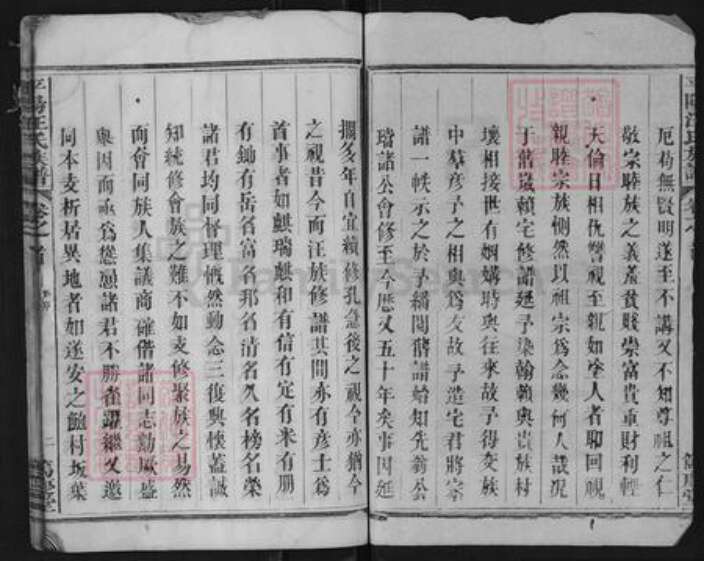 平陽汪氏族譜 卷之首
厄苟無賢明遂至不講又不知尊祖之仁
敬宗睦族之義羞貧賤崇富貴重財利輕
天倫日相仇讐視至親如塗人者聊回視
親睦宗族惻然以祖宗為念幾何人哉況
于舊歲賴宅修譜延予染翰賴與貴族村
壤相接世有姻媾時與往來故予得交族
中羣彥予之相與為友故予造宅君將宗
譜一帙示之於予繙閱舊譜始知先翁公
璿諸公會修至今歷又五十年矣事因延
擱多年自宜續修孔急後之視今亦猶今
之視昔今而汪族修譜其間亦有彥士為
首事者如麒瑞麒和有信有定有米有朋
有鋤有岳名富名邦名清名久名榜名榮
諸君均同督理慨然動念三復興懷蓋誠
知統修會族之難不如支修聚族之易然
而會同族人集議商確偕諸同志勷厥盛
舉因而亟為慫恿諸君不勝雀躍繼又邀
同本支析居異地者如遂安之 村坂葉
平陽汪氏族譜 卷之首